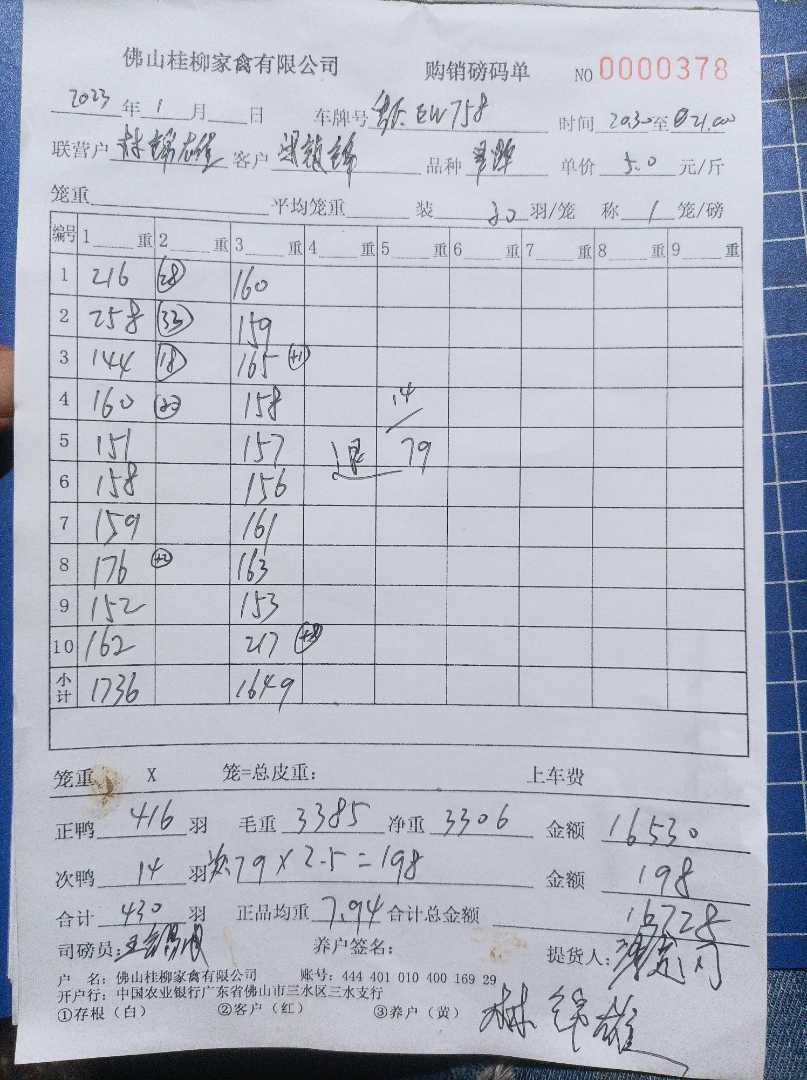 佛山桂柳家禽有限公司 购销磅码单 NO 0000378
2023年1月 日 车牌号 EW758 时间 20:30至21:00
联营户 林锦雄 客户 品种 单价 5.0 元/斤
笼重 平均笼重 装 30 羽/笼 称 1 笼/磅
编号 1 重 2 重 3 重 4 重 5 重 6 重 7 重 8 重 9 重
1 216 28 160
2 258 33 159
3 144 18 165 +1
4 160 158 14
5 151 157 退 79
6 158 156
7 159 161
8 176 +2 163
9 152 153
10 162 217
小计 1736 1649
笼重 X 笼=总皮重: 上车费
正鸭 416 羽 毛重 3385 净重 3306 金额 16530
次鸭 14 羽 次79×2.5=198 金额 198
合计 430 羽 正品均重 7.94 合计总金额 16728
司磅员: 养户签名: 提货人:
户 名: 佛山桂柳家禽有限公司 账号: 444 401 010 400 169 29
开户行: 中国农业银行广东省佛山市三水区三水支行
①存根(白) ②客户(红) ③养户(黄) 林锦雄